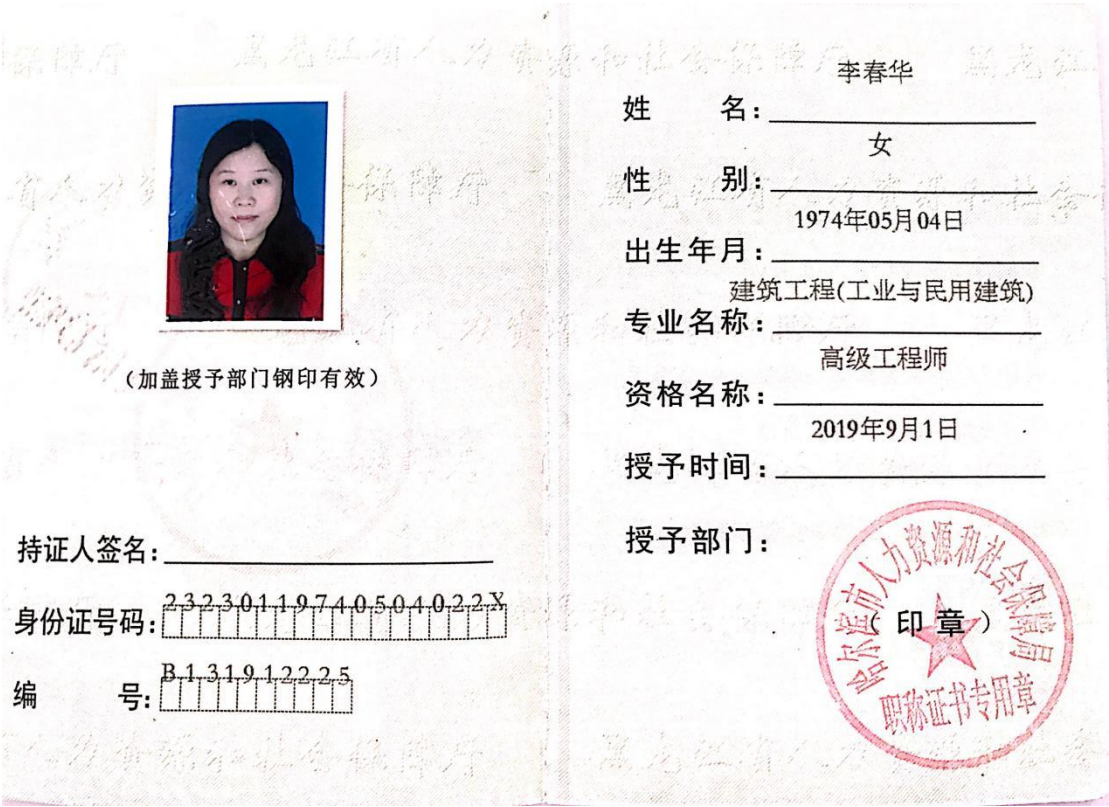 (加盖授予部门钢印有效)
持证人签名:
身份证号码:23230119740504022X
编 号:B131912225
李春华
姓 名:
女
性 别:
1974年05月04日
出生年月:
建筑工程(工业与民用建筑)
专业名称:
高级工程师
资格名称:
2019年9月1日
授予时间:
授予部门:
哈尔滨市人力资源和社会保障局
(印章)
职称证书专用章